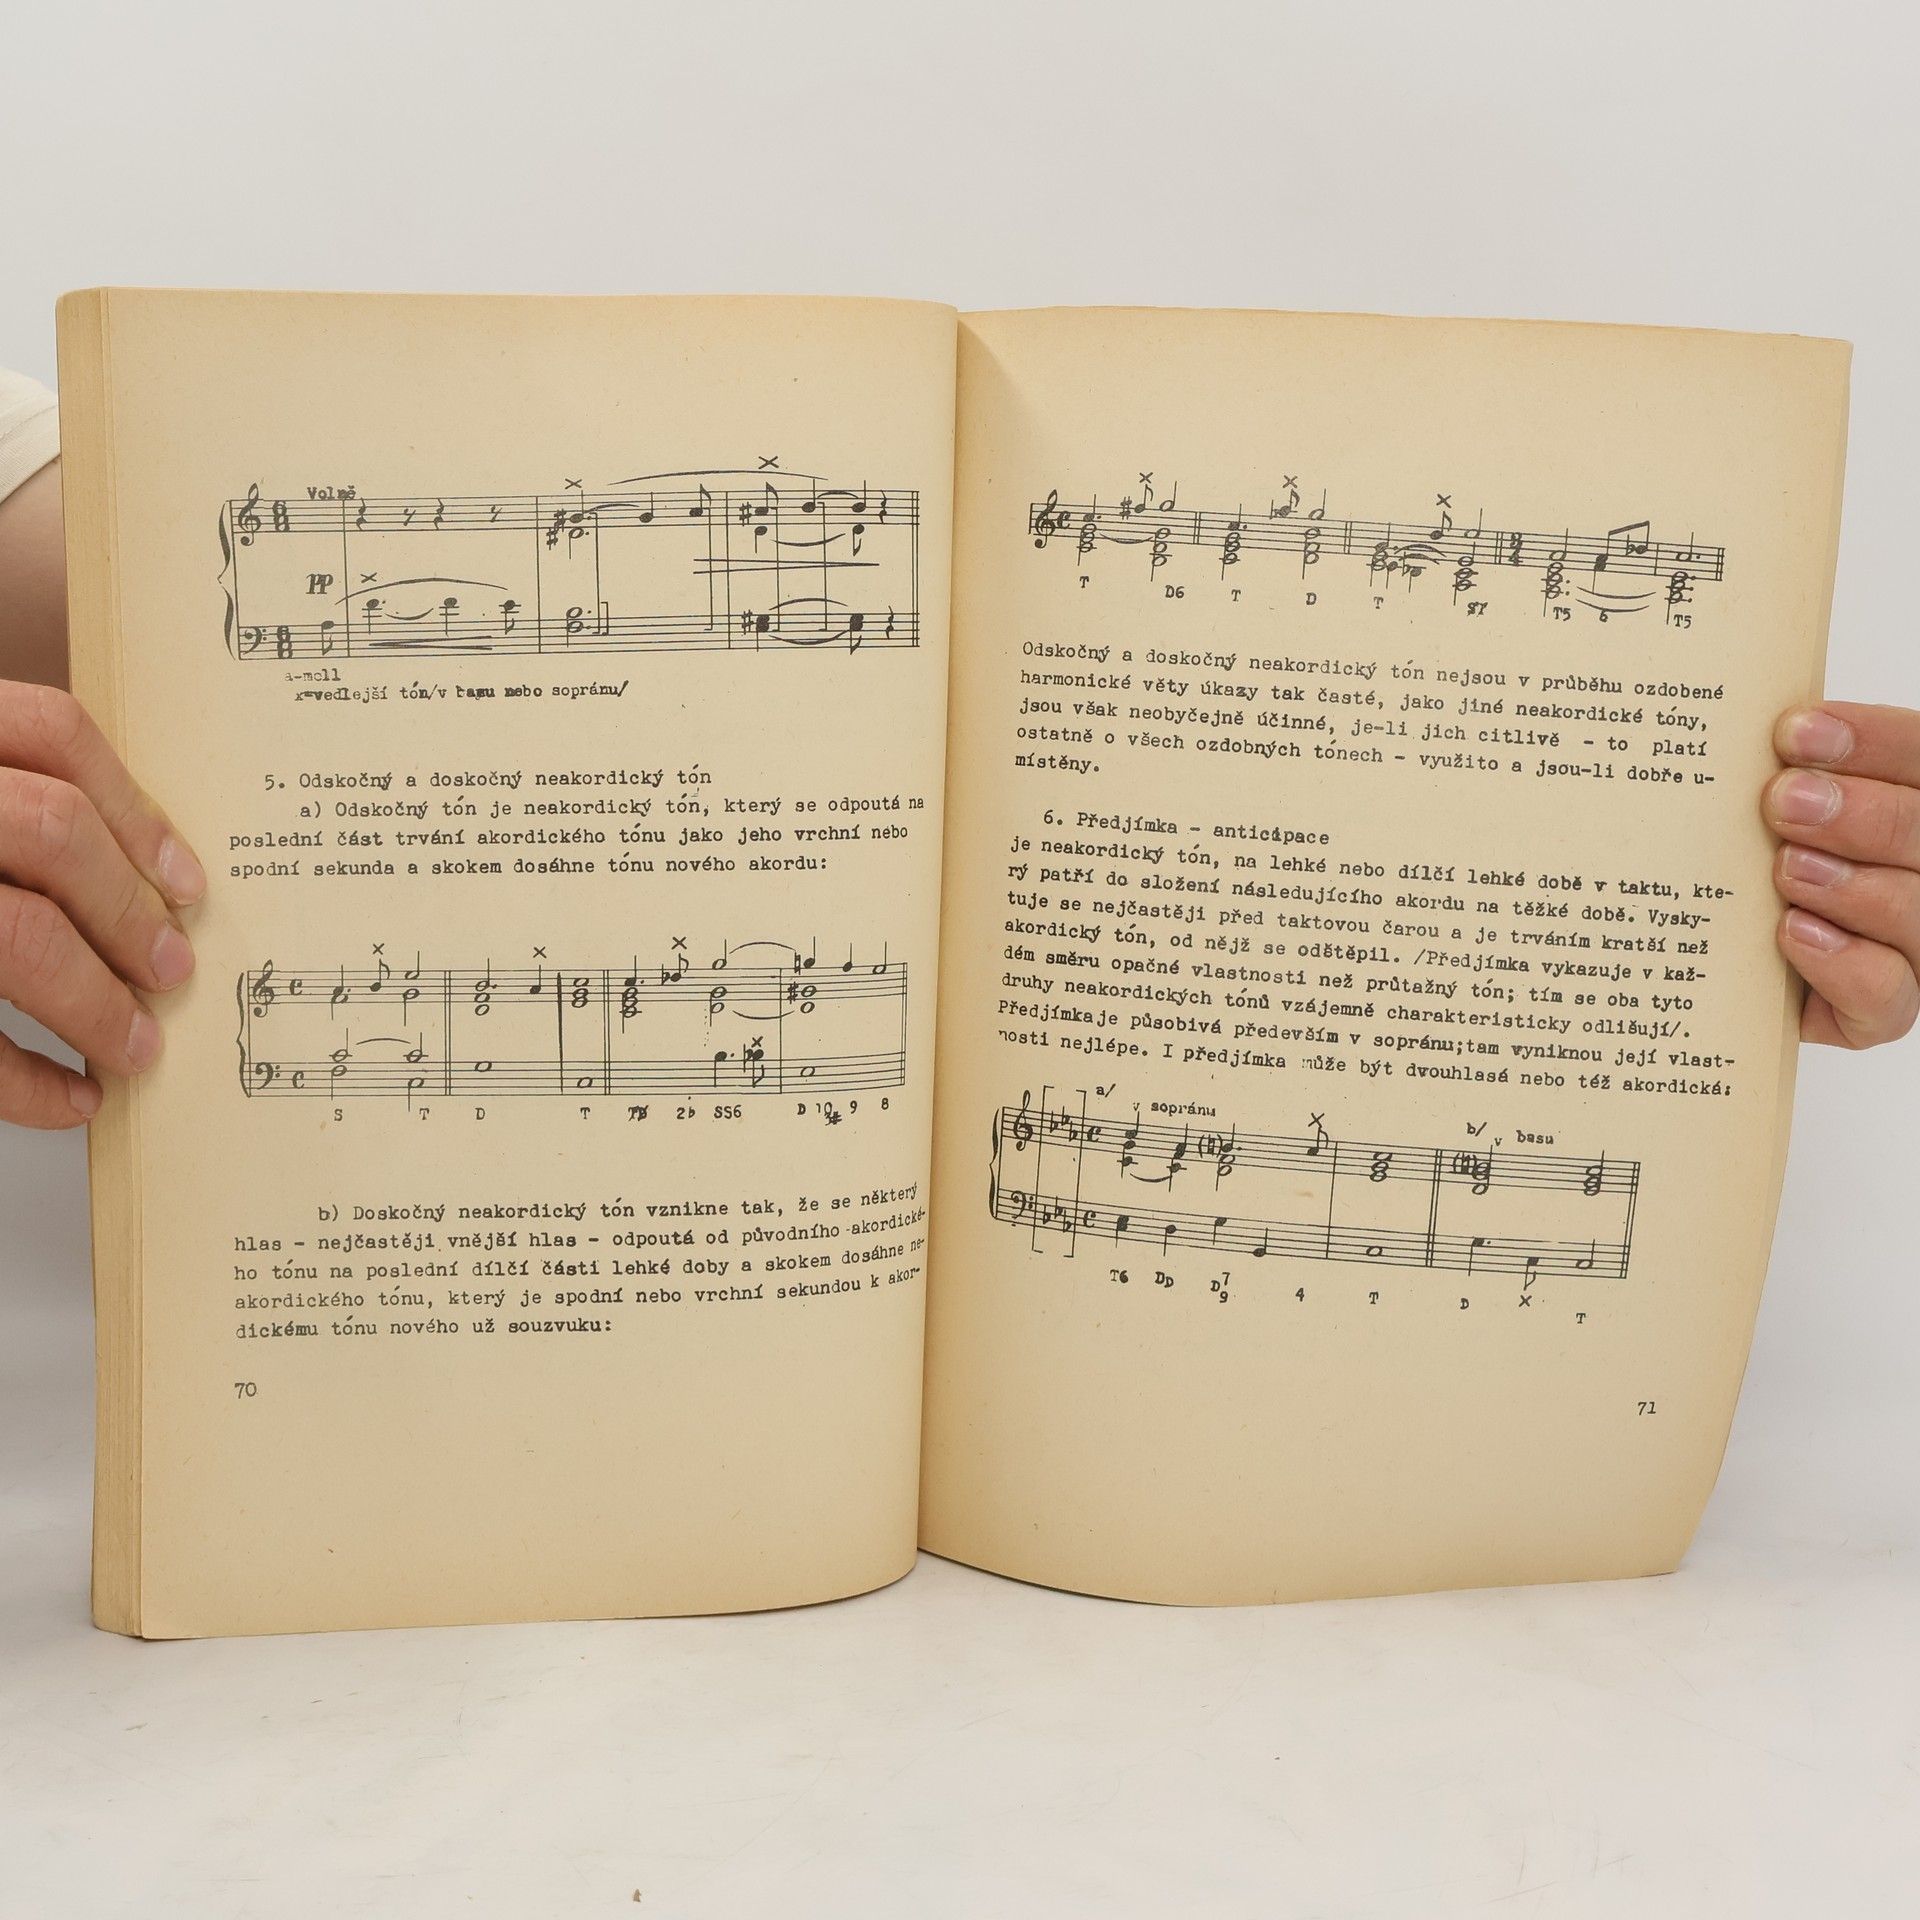 Volně
pp
a-moll
x=vedlejší tón/v basu nebo sopránu/
5. Odskočný a doskočný neakordický tón
a) Odskočný tón je neakordický tón, který se odpoutá na
poslední část trvání akordického tónu jako jeho vrchní nebo
spodní sekunda a skokem dosáhne tónu nového akordu:
S T D T 2b SS6 D 10 9 8
b) Doskočný neakordický tón vznikne tak, že se některý
hlas - nejčastěji vnější hlas - odpoutá od původního akordické-
ho tónu na poslední dílčí části lehké doby a skokem dosáhne ne-
akordického tónu, který je spodní nebo vrchní sekundou k akor-
dickému tónu nového už souzvuku:
70
T D6 T D T T5 6 T5
Odskočný a doskočný neakordický tón nejsou v průběhu ozdobené
harmonické věty úkazy tak časté, jako jiné neakordické tóny,
jsou však neobyčejně účinné, je-li jich citlivě - to platí
ostatně o všech ozdobných tónech - využito a jsou-li dobře u-
místěny.
6. Předjímka - anticipace
je neakordický tón, na lehké nebo dílčí lehké době v taktu, kte-
rý patří do složení následujícího akordu na těžké době. Vysky-
tuje se nejčastěji před taktovou čarou a je trváním kratší než
akordický tón, od nějž se odštěpil. /Předjímka vykazuje v kaž-
dém směru opačné vlastnosti než průtažný tón; tím se oba tyto
druhy neakordických tónů vzájemně charakteristicky odlišují/.
Předjímkaje působivá především v sopránu;tam vyniknou její vlast-
nosti nejlépe. I předjímka může být dvouhlasá nebo též akordická:
a/ v sopránu
b/ v basu
T6 DD D7 9 4 T D x T
71